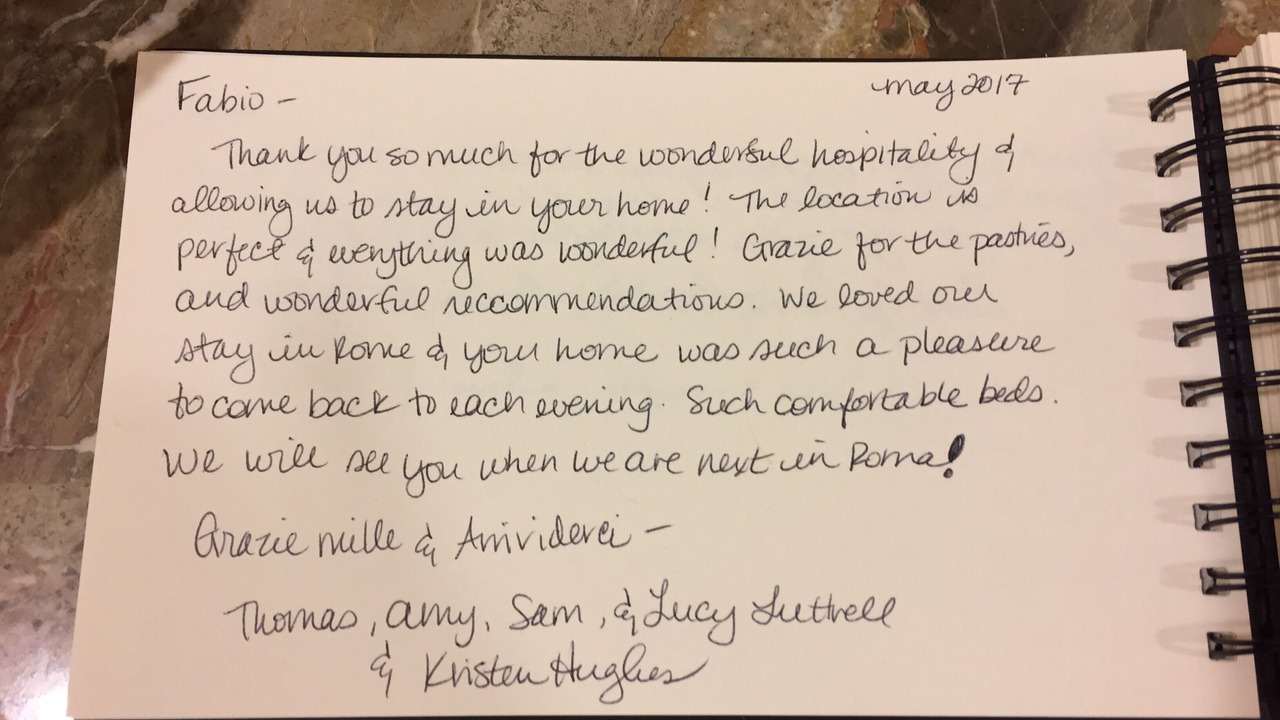 Fabio - may 2017
Thank you so much for the wonderful hospitality &
allowing us to stay in your home! The location is
perfect & everything was wonderful! Grazie for the pastries,
and wonderful reccommendations. We loved our
stay in Rome & your home was such a pleasure
to come back to each evening. Such comfortable beds.
We will see you when we are next in Roma!
Grazie mille & Arrividerci -
Thomas, Amy, Sam, & Lucy Luttrell
& Kristen Hughes